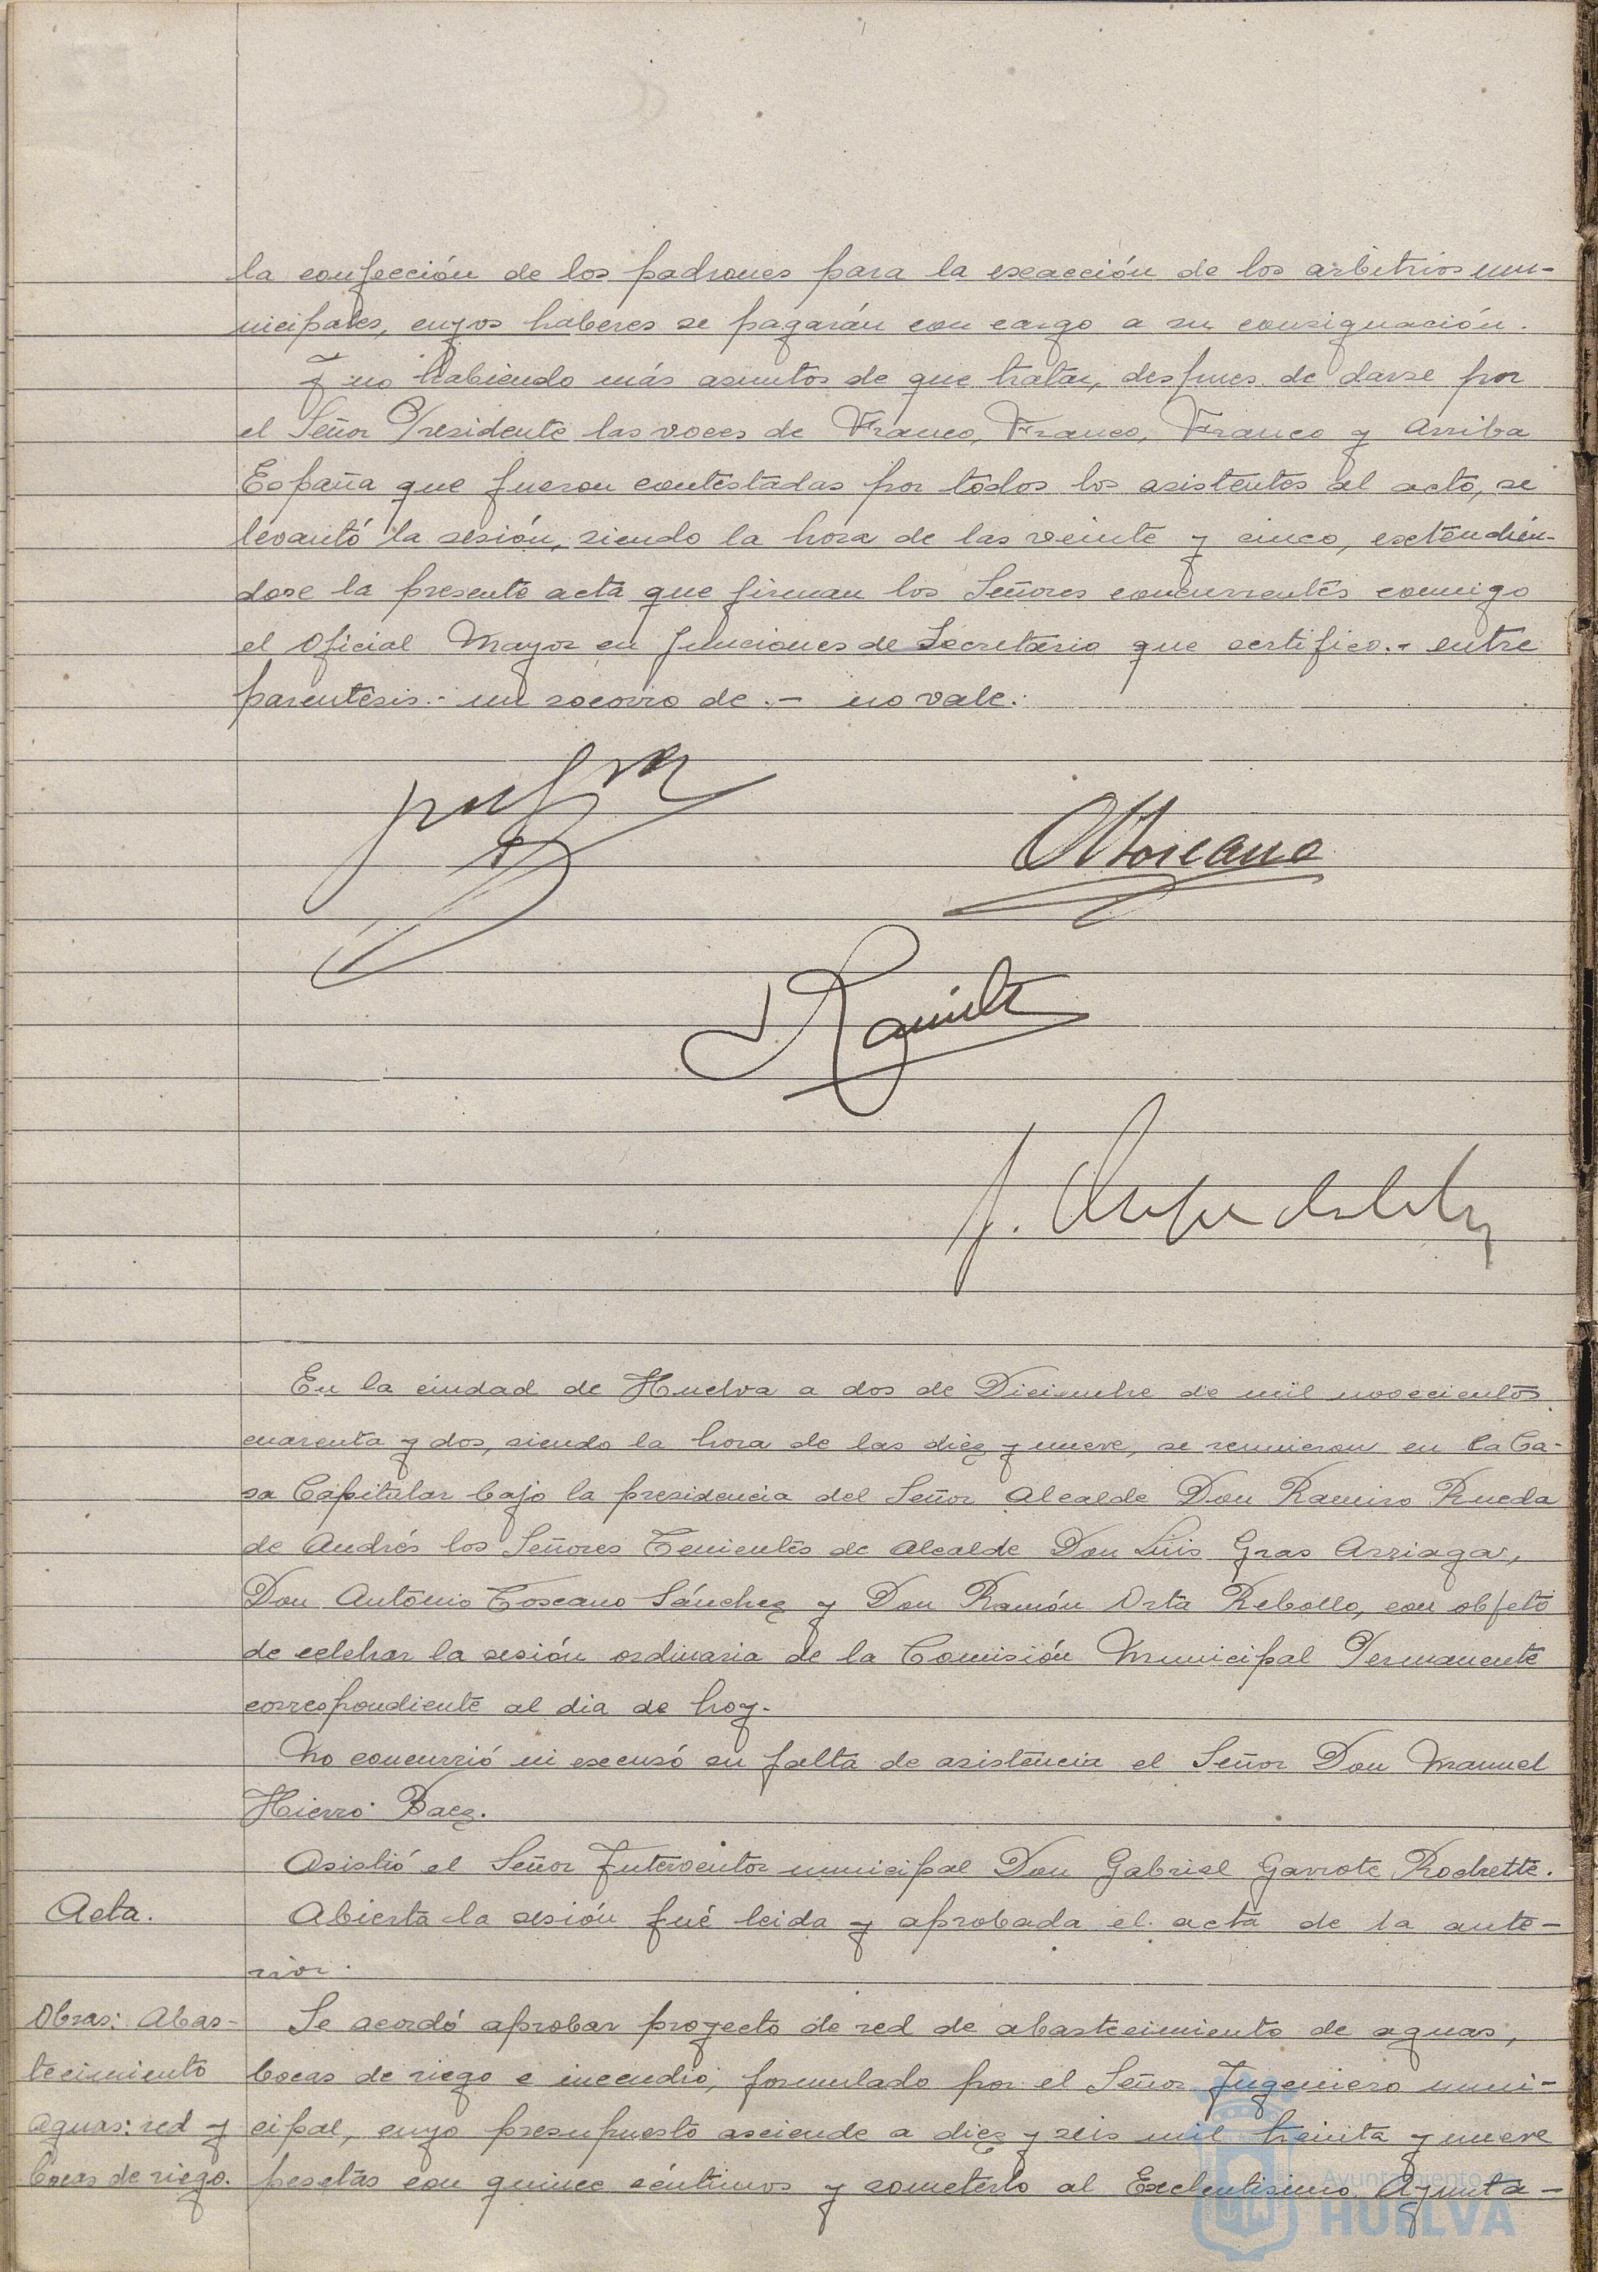 la confección de los padrones para la exacción de los arbitrios mu-
nicipales, cuyos haberes se pagarán con cargo a su consignación.
Y no habiendo más asuntos de que tratar, despues de darse por
el Señor Presidente las voces de Franco, Franco, Franco y Arriba
España que fueron contestadas por todos los asistentes al acto, se
levantó la sesión, siendo la hora de las veinte y cinco, extendién-
dose la presente acta que firman los Señores concurrentes conmigo
el Oficial Mayor en funciones de Secretario que certifico.- entre
parentesis.- un socorro de.- no vale.
A Toscano
En la ciudad de Huelva a dos de Diciembre de mil novecientos
cuarenta y dos, siendo la hora de las diez y nueve, se reunieron en la Ca-
sa Capitular bajo la presidencia del Señor Alcalde Don Ramiro Rueda
de Andrés los Señores Tenientes de Alcalde Don Luis Gras Arriaga,
Don Antonio Toscano Sánchez y Don Ramón Orta Rebollo, con objeto
de celebrar la sesión ordinaria de la Comisión Municipal Permanente
correspondiente al dia de hoy.
No concurrió ni excusó su falta de asistencia el Señor Don Manuel
Hierro Baez.
Asistió el Señor Interventor municipal Don Gabriel Garrote Rodrette.
Acta.
Abierta la sesión fué leida y aprobada el acta de la ante-
rior.
Obras: Abas-
tecimiento
aguas: red y
bocas de riego.
Se acordó aprobar proyecto de red de abastecimiento de aguas,
bocas de riego e incendio, formulado por el Señor Ingeniero muni-
cipal, cuyo presupuesto asciende a diez y seis mil treinta y nueve
pesetas con quince céntimos y someterlo al Excelentísimo Ayunta-
Ayuntamiento de
HUELVA